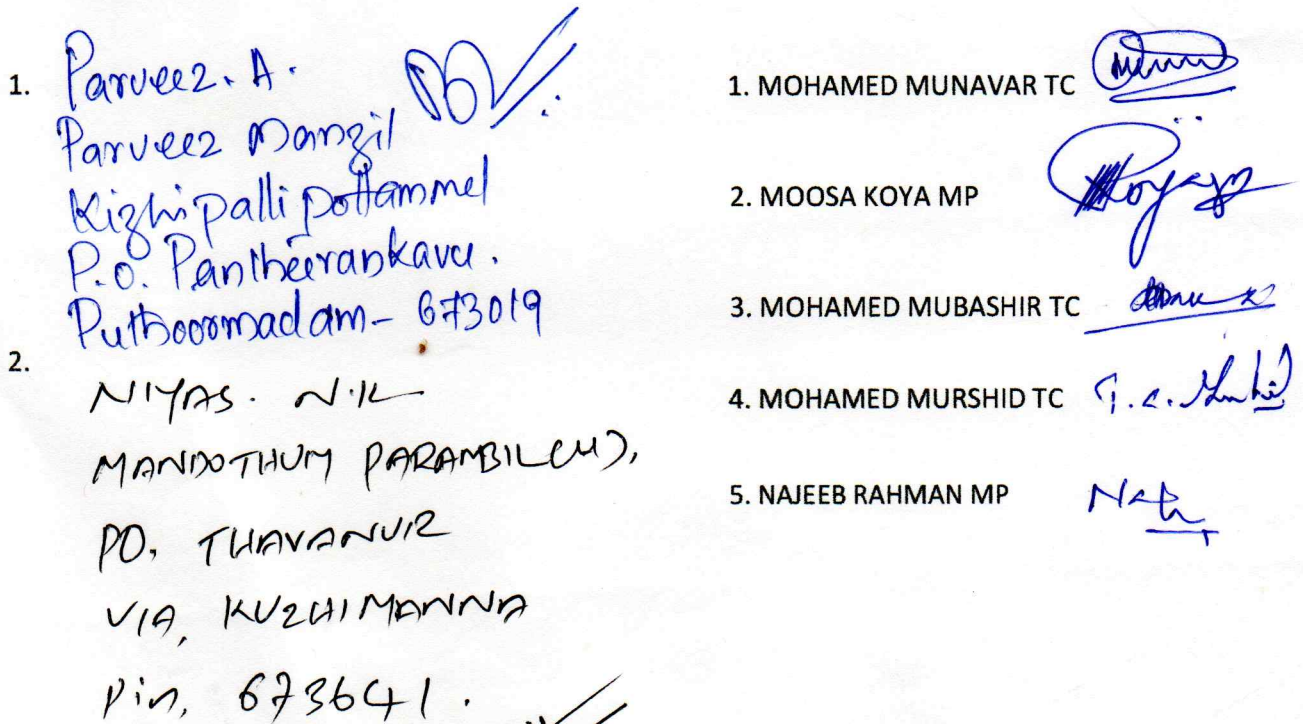 1. Parveez. A.
Parveez Manzil
Kizhipalli pottammel
P.O. Pantheerankavu.
Puthoormadam - 673019
2.
NIYAS. N.K
MANDOTHUM PARAMBIL (H),
PO, THAVANUR
VIA, KUZHIMANNA
Pin, 673641.
1. MOHAMED MUNAVAR TC
2. MOOSA KOYA MP
Koya
3. MOHAMED MUBASHIR TC
4. MOHAMED MURSHID TC T.C.
5. NAJEEB RAHMAN MP